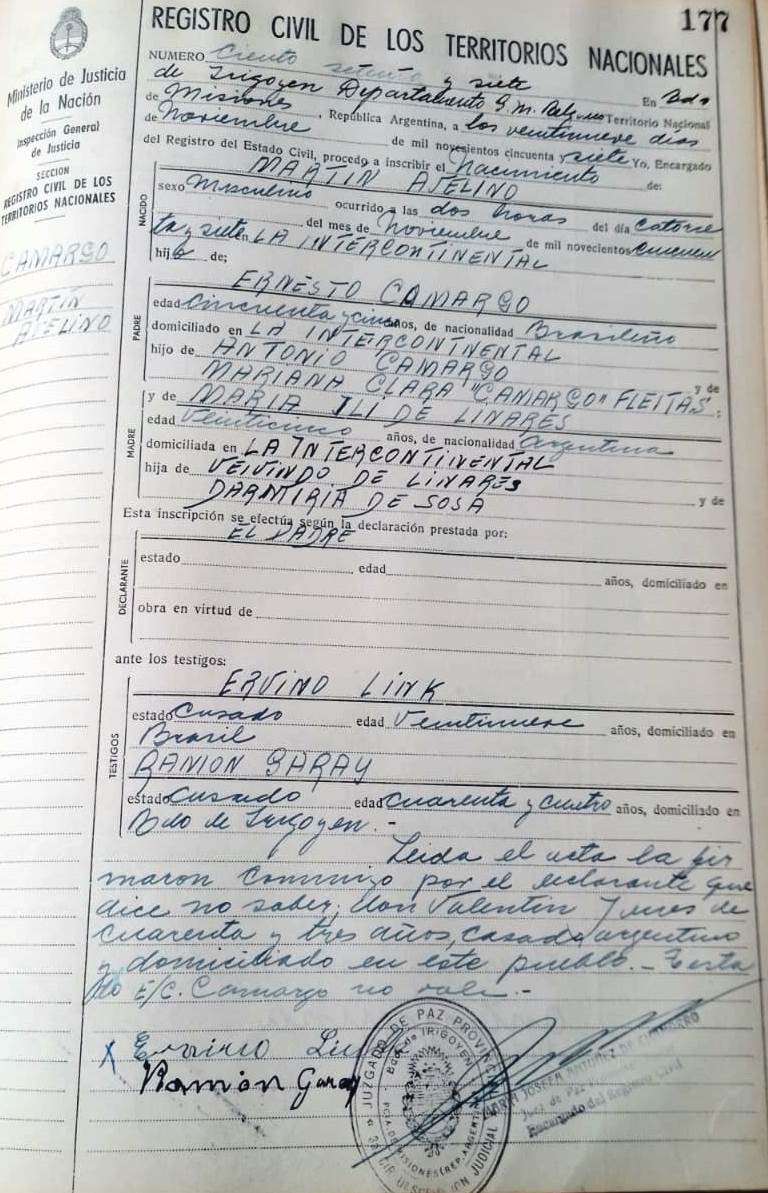 177
REGISTRO CIVIL DE LOS TERRITORIOS NACIONALES
Ministerio de Justicia
de la Nación
Inspección General
de Justicia
SECCION
REGISTRO CIVIL DE LOS
TERRITORIOS NACIONALES
CAMARGO
MARTIN
AVELINO
NUMERO Ciento setenta y siete En Bdo
de Irigoyen Departamento G. M. Belgrano Territorio Nacional
de Misiones, República Argentina, a los veintinueve dias
de Noviembre de mil novecientos cincuenta y siete Yo, Encargado
del Registro del Estado Civil, procedo a inscribir el Nacimiento de:
NACIDO
MARTIN AVELINO
sexo Masculino ocurrido a las dos horas del día catorce
del mes de Noviembre de mil novecientos cincuen
ta y siete en LA INTERCONTINENTAL
hijo de;
PADRE
ERNESTO CAMARGO
edad cincuenta y años, de nacionalidad Brasileño
domiciliado en LA INTERCONTINENTAL
hijo de ANTONIO CAMARGO y de
MARIANA CLARA "CAMARGO" FLEITAS;
MADRE
y de MARIA ILI DE LINARES
edad Veinticinco años, de nacionalidad Argentina
domiciliada en LA INTERCONTINENTAL
hija de VEIVINDO DE LINARES y de
DE SOSA
Esta inscripción se efectúa según la declaración prestada por:
DECLARANTE
EL PADRE
estado edad años, domiciliado en
obra en virtud de
ante los testigos:
TESTIGOS
ERVINO LINK
estado Casado edad Veintinueve años, domiciliado en
Brasil
RAMON GARAY
estado Casado edad cuarenta y cuatro años, domiciliado en
Bdo de Irigoyen.-
Leida el acta la fir
maron conmigo por el declarante que
dice no saber, don Valentin de
cuarenta y tres años, casado argentino
y domiciliado en este pueblo.- Testa
do E/C. Camargo no vale.-
X Ervino Link
Ramón Garay
JUZGADO DE PAZ PROVINCIA
Bdo. de IRIGOYEN
PCIA DE MISIONES (REP. ARGENTINA)
CIRCUNSCRIPCION JUDICIAL
MARIA JOSEFA
Juez de Paz
Encargado del Registro Civil